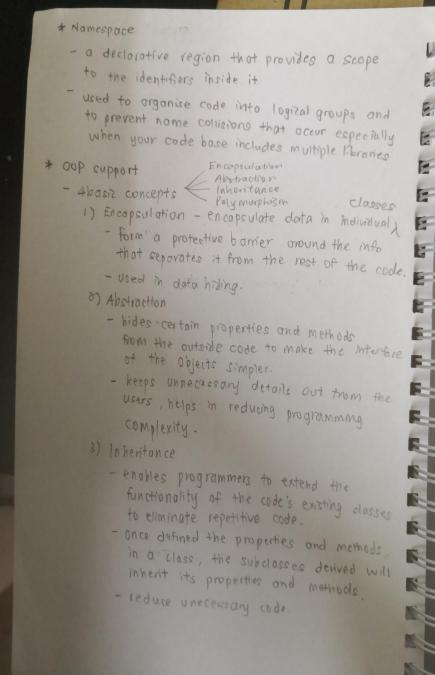 * Namespace
- a declarative region that provides a scope
to the identifiers inside it
- used to organise code into logical groups and
to prevent name collisions that occur especially
when your code base includes multiple libraries
* OOP support
- 4basic concepts
Encapsulation
Abstraction
Inheritance
Polymorphism
1) Encapsulation - encapsulate data in individual classes
- form a protective barrier around the info
that separates it from the rest of the code.
- used in data hiding.
2) Abstraction
- hides certain properties and methods
from the outside code to make the interface
of the objects simpler.
- keeps unnecessary details out from the
users, helps in reducing programming
complexity.
3) Inheritance
- enables programmers to extend the
functionality of the code's existing classes
to eliminate repetitive code.
- once defined the properties and methods
in a class, the subclasses derived will
inherit its properties and methods.
- reduce unecessary code.